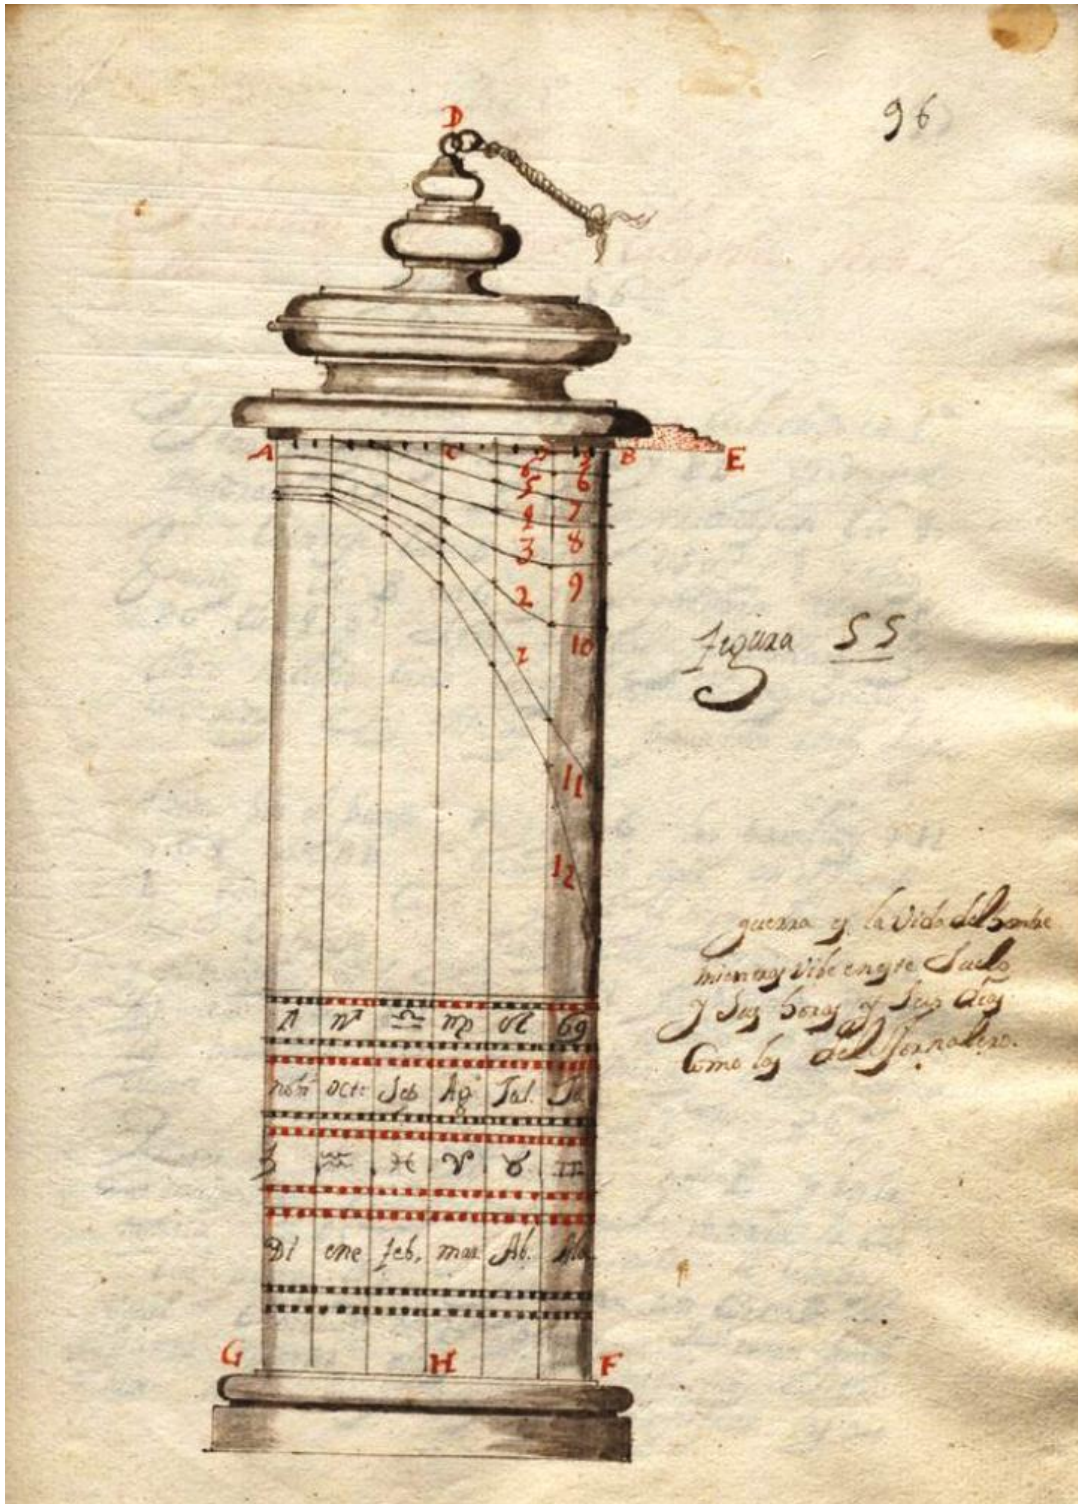 96
D
A C B E
6 5
5 6
4 7
3 8
2 9
1 10
11
12
figura 55
guerra es la vida del hombre
mientras vibe en este suelo
y sus horas y sus dias
como las del Jornalero.
♐ ♏ ♎ ♍ ♌ ♋
nobe octe Sep Ago Jul. Ju
♑ ♒ ♓ ♈ ♉ ♊
Di ene feb. mar Ab.
G H F